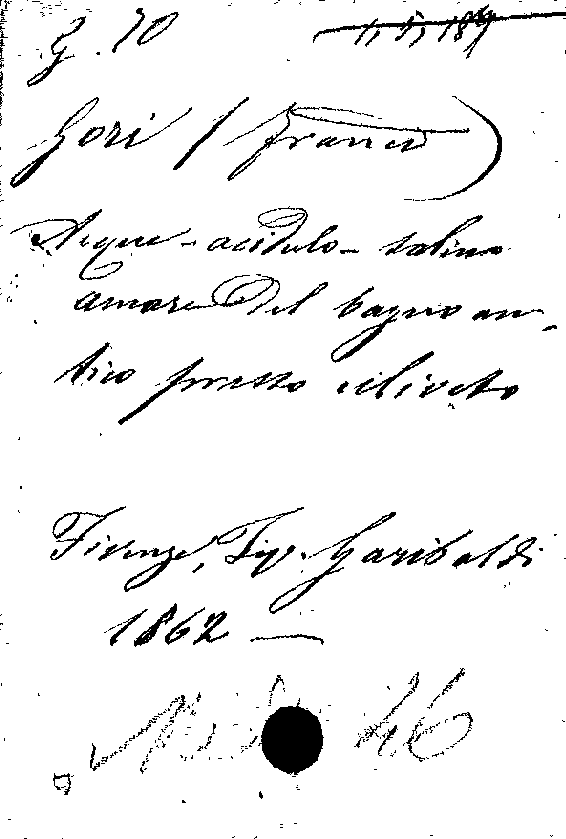 G. 70 1, 5, 189
Gori (Franco)
Acque - acidulo - salino
amare del bagno an-
tico presso Oliveto
Firenze, Tip. Garibaldi
1862 —
46